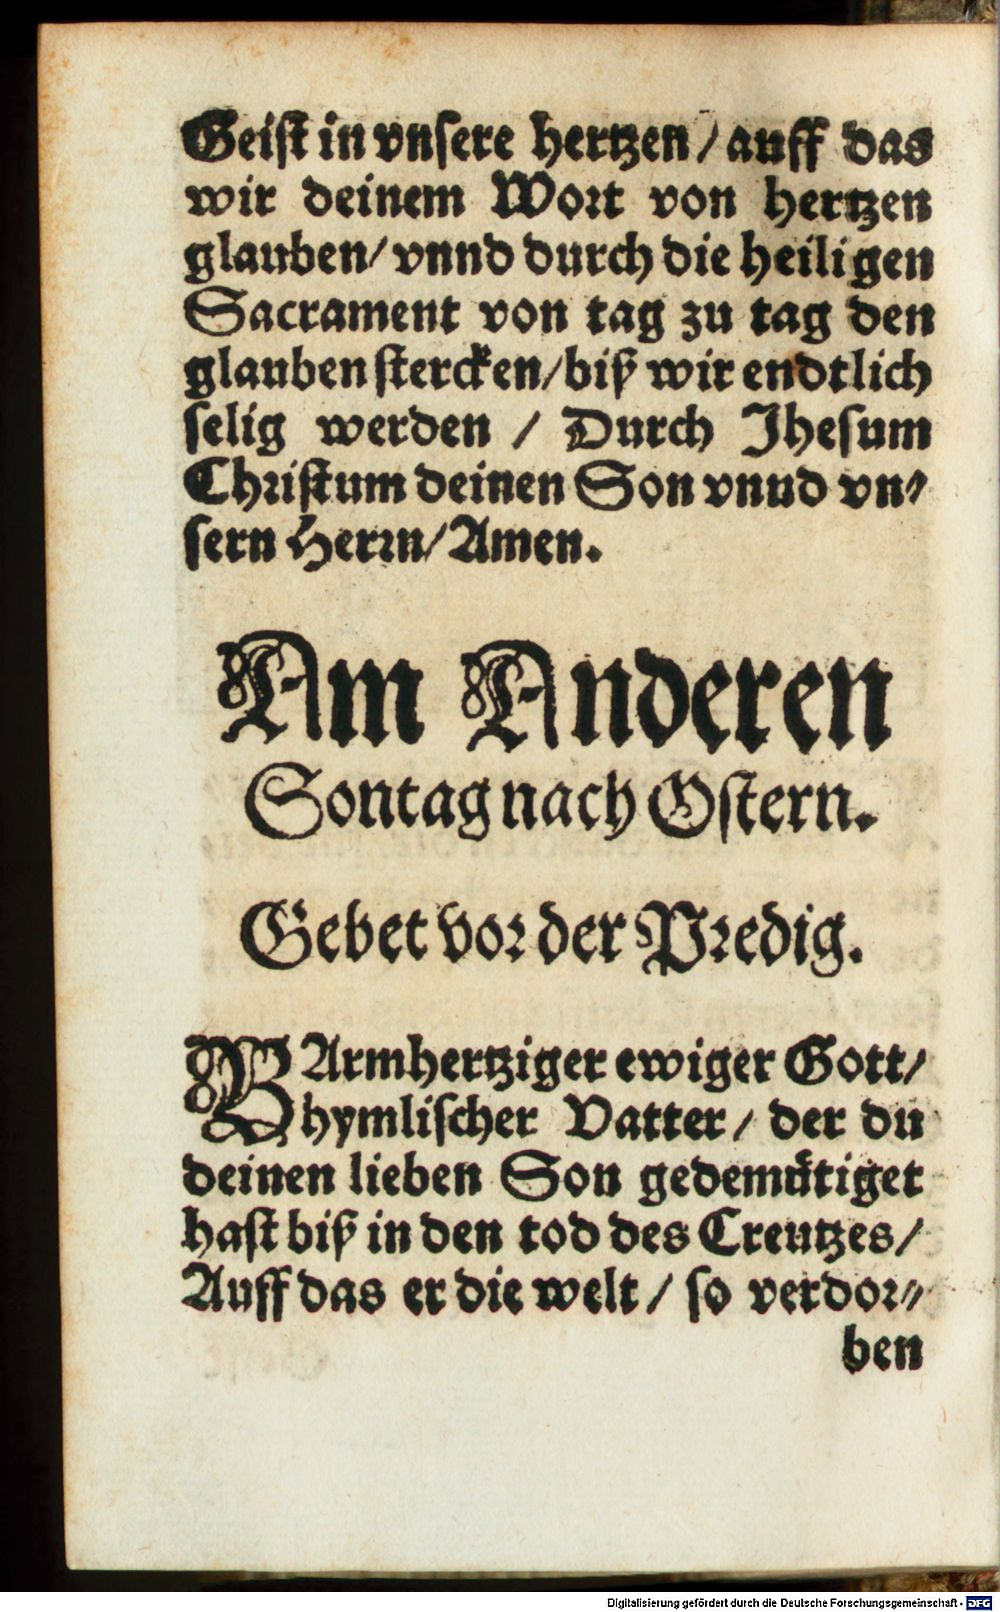 Geist in vnsere hertzen / auff das
wir deinem Wort von hertzen
glauben / vnnd durch die heiligen
Sacrament von tag zu tag den
glauben stercken / biß wir endtlich
selig werden / Durch Jhesum
Christum deinen Son vnnd vn⸗
sern Herrn / Amen.
Am Anderen
Sontag nach Ostern.
Gebet vor der Predig.
BArmhertziger ewiger Gott /
hymlischer Vatter / der du
deinen lieben Son gedemuͤtiget
hast biß in den tod des Creutzes /
Auff das er die welt / so verdor⸗
ben
Digitalisierung gefördert durch die Deutsche Forschungsgemeinschaft - DFG